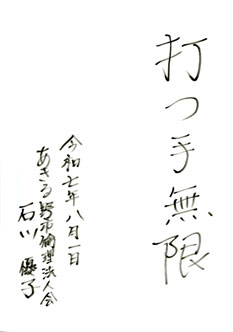 打つ手無限
令和七年八月一日
あきる野市倫理法人会
石川 優子